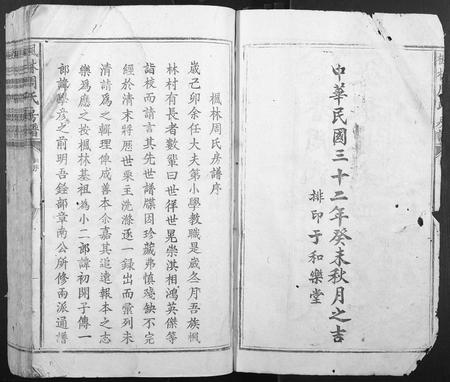 中華民國三十二年癸未秋月之吉
排印于和樂堂
楓林周氏房譜序
歲己卯余任大夫第小學教職是歲仝月吾族楓
林村有長者數輩曰世徉世晃崇淇相鴻英傑等
詣校而請言其先世譜牒因珍藏弗慎殘缺不完
經於清末將歷世采主洗滌逐一錄出而彙列未
清請爲之輯理俾成善本余嘉其追遠報本之志
樂爲應之按楓林基祖爲小二郎諱初聞子傳一
郎諱 彥之前明吾 部章南公所修兩派通譜
楓林周氏房譜